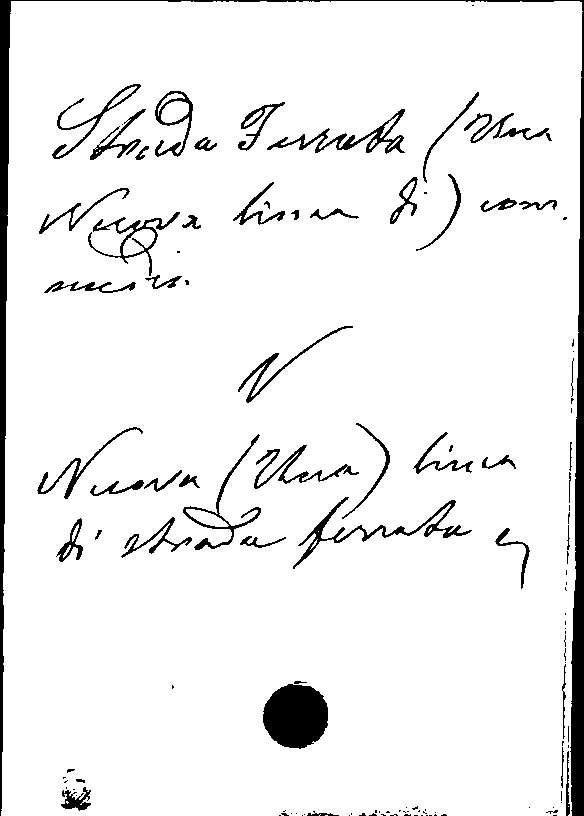 Strada Ferrata (Una
Nuova linea di) com-
media.
V
Nuova (Una) linea
di strada ferrata